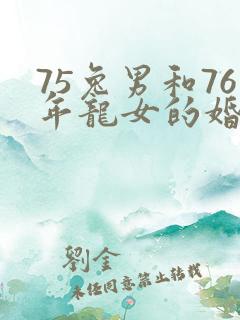 75兔男和76
年龍女的婚
劉金
未經同意禁止轉載